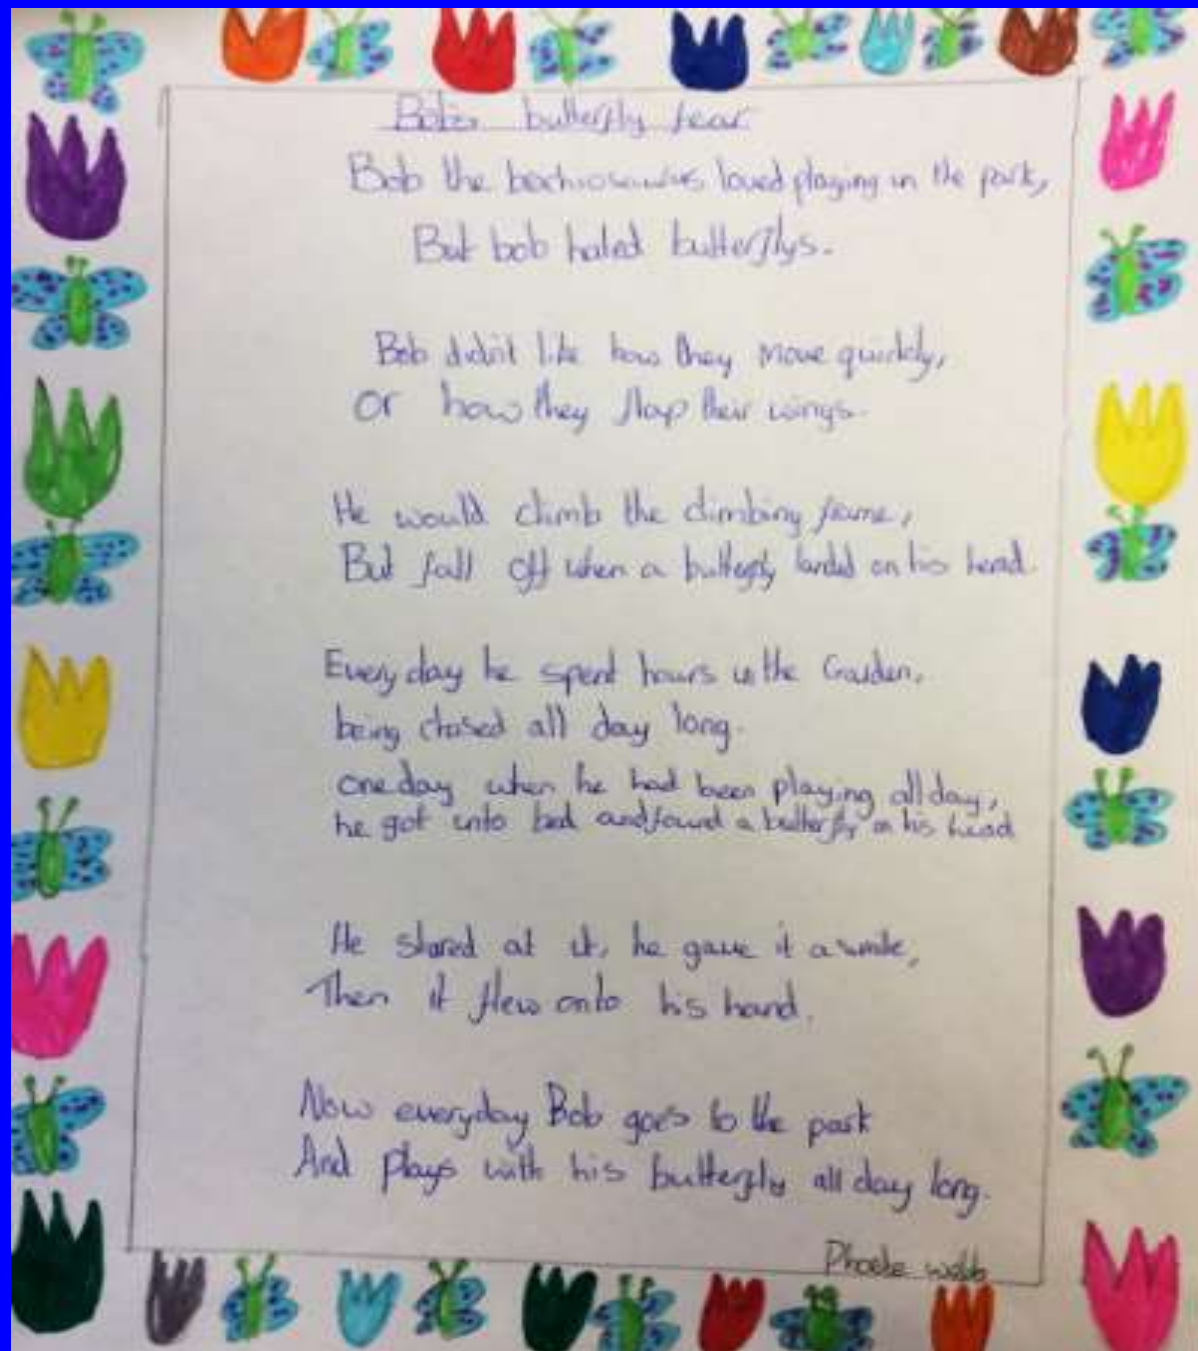 Bobs butterfly fear
Bob the bachiosaurus loved playing in the park,
But bob hated butterflys.
Bob didn't like how they move quickly,
Or how they flap their wings.
He would climb the climbing frame,
But fall off when a butterfly landed on his head.
Every day he spent hours in the Garden,
being chased all day long.
one day when he had been playing all day,
he got into bed and found a butterfly on his head
He stared at it, he gave it a smile,
Then it flew onto his hand.
Now everyday Bob goes to the park
And plays with his butterfly all day long.
Phoebe webb